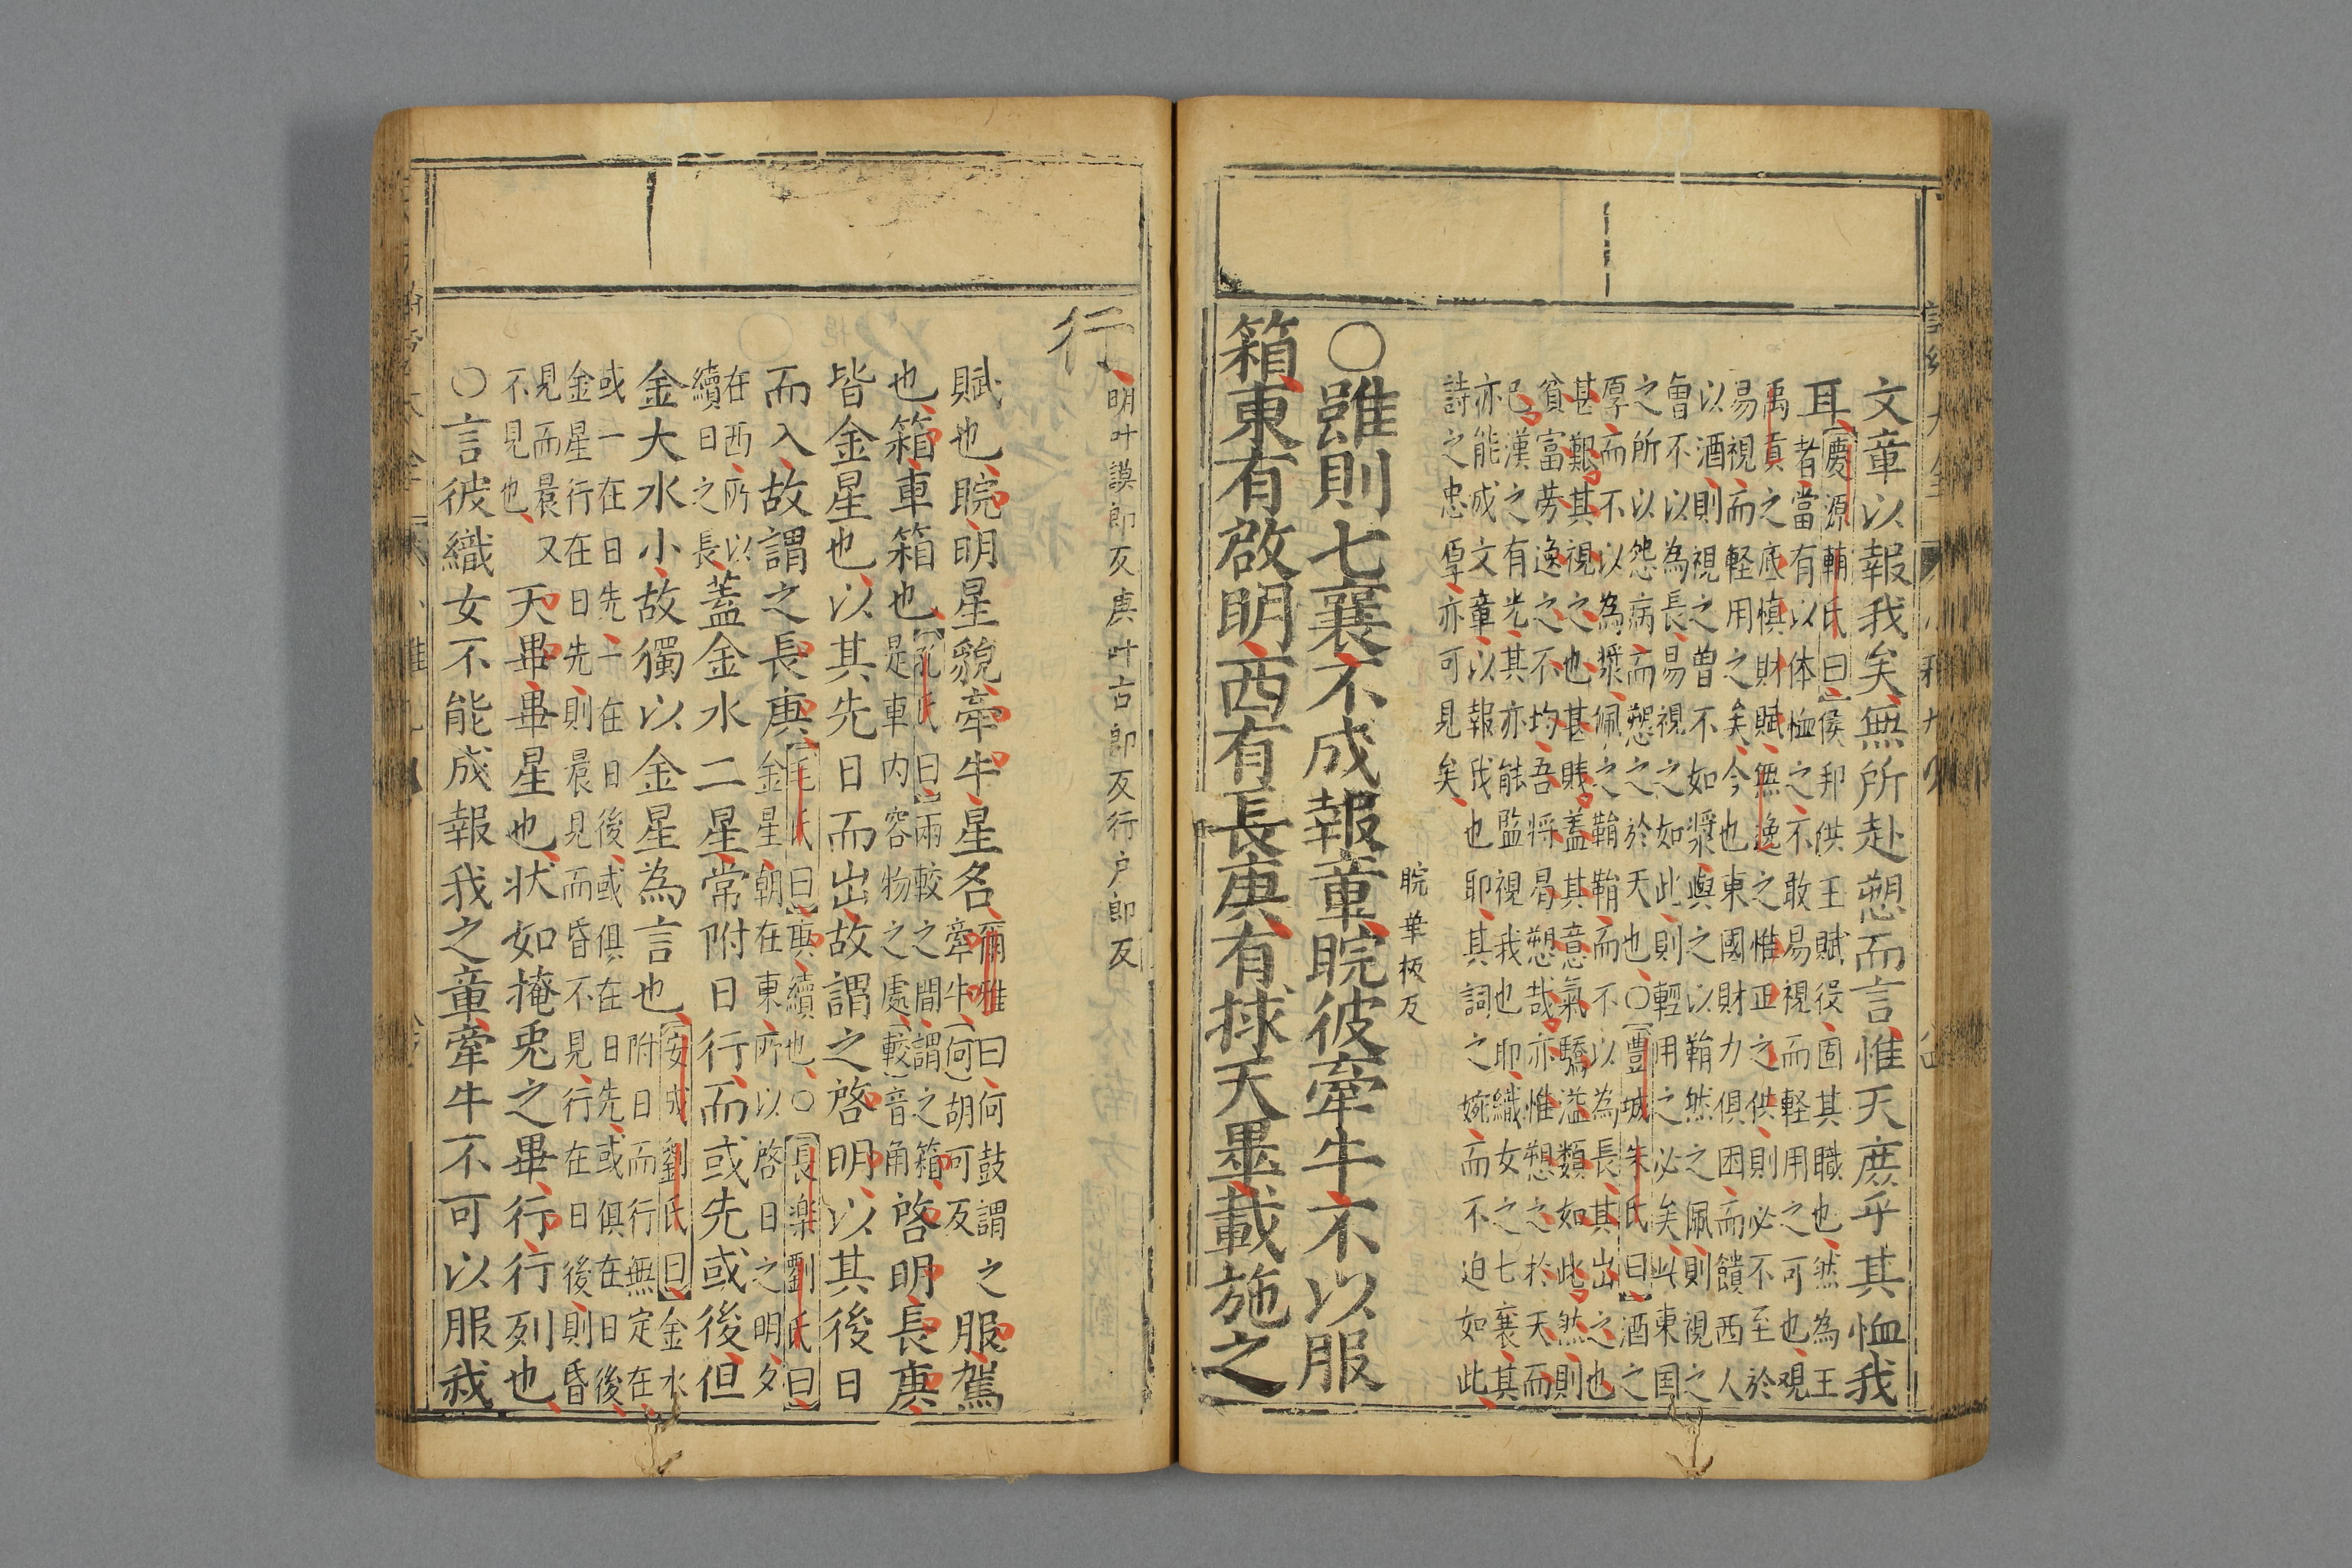 文章以報我矣無所赴愬而言惟天庶乎其恤我
耳
慶源輔氏曰侯邦供王賦役固其職也然為王
者當有以体恤之不敢易視而軽用之可也観
禹貢之底慎財賦無逸之惟正之供則必不至於
易視而軽用之矣今也東國財力俱困而饋西人
以酒則視之曽不如漿與之以鞙然之佩則視之
曽不以為長易視之如此則輕用之必矣此東国
之所以怨病而愬之於天也〇豊城朱氏曰酒之
厚而不以為漿佩之鞙鞙而不以為長其出之也
甚艱其視之也甚賤蓋其意氣驕溢類如此然則
貧富労逸之不均吾将曷愬哉亦惟愬之於天而
已漢之有光其亦能監視我也耶織女之七襄其
亦能成文章以報我也耶其詞之婉而不迫如此
詩之忠厚亦可見矣
睆華板反
〇雖則七襄不成報章睆彼牽牛不以服
箱東有啟明西有長庚有捄天畢載施之
行
明叶謨郎反庚叶古郎反行户郎反
賦也睆明星貌牽牛星名
爾雅曰何鼓謂之
牽牛(何)胡可反
服駕
也箱車箱也
孔氏曰兩較之間謂之箱
是車内容物之處(較)音角
啓明長庚
皆金星也以其先日而出故謂之啓明以其後日
而入故謂之長庚
毛氏曰庚續也〇長楽劉氏曰
金星朝在東所以啓日之明夕
在西所以
續日之長
蓋金水二星常附日行而或先或後但
金大水小故獨以金星為言也
安成劉氏曰金水
附日而行無定在
或一在日先一在日後或俱在日先或俱在日後
金星行在日先則晨見而昏不見行在日後則昏
見而晨又
不見也
天畢畢星也状如掩兎之畢行行列也
〇言彼織女不能成報我之章牽牛不可以服我